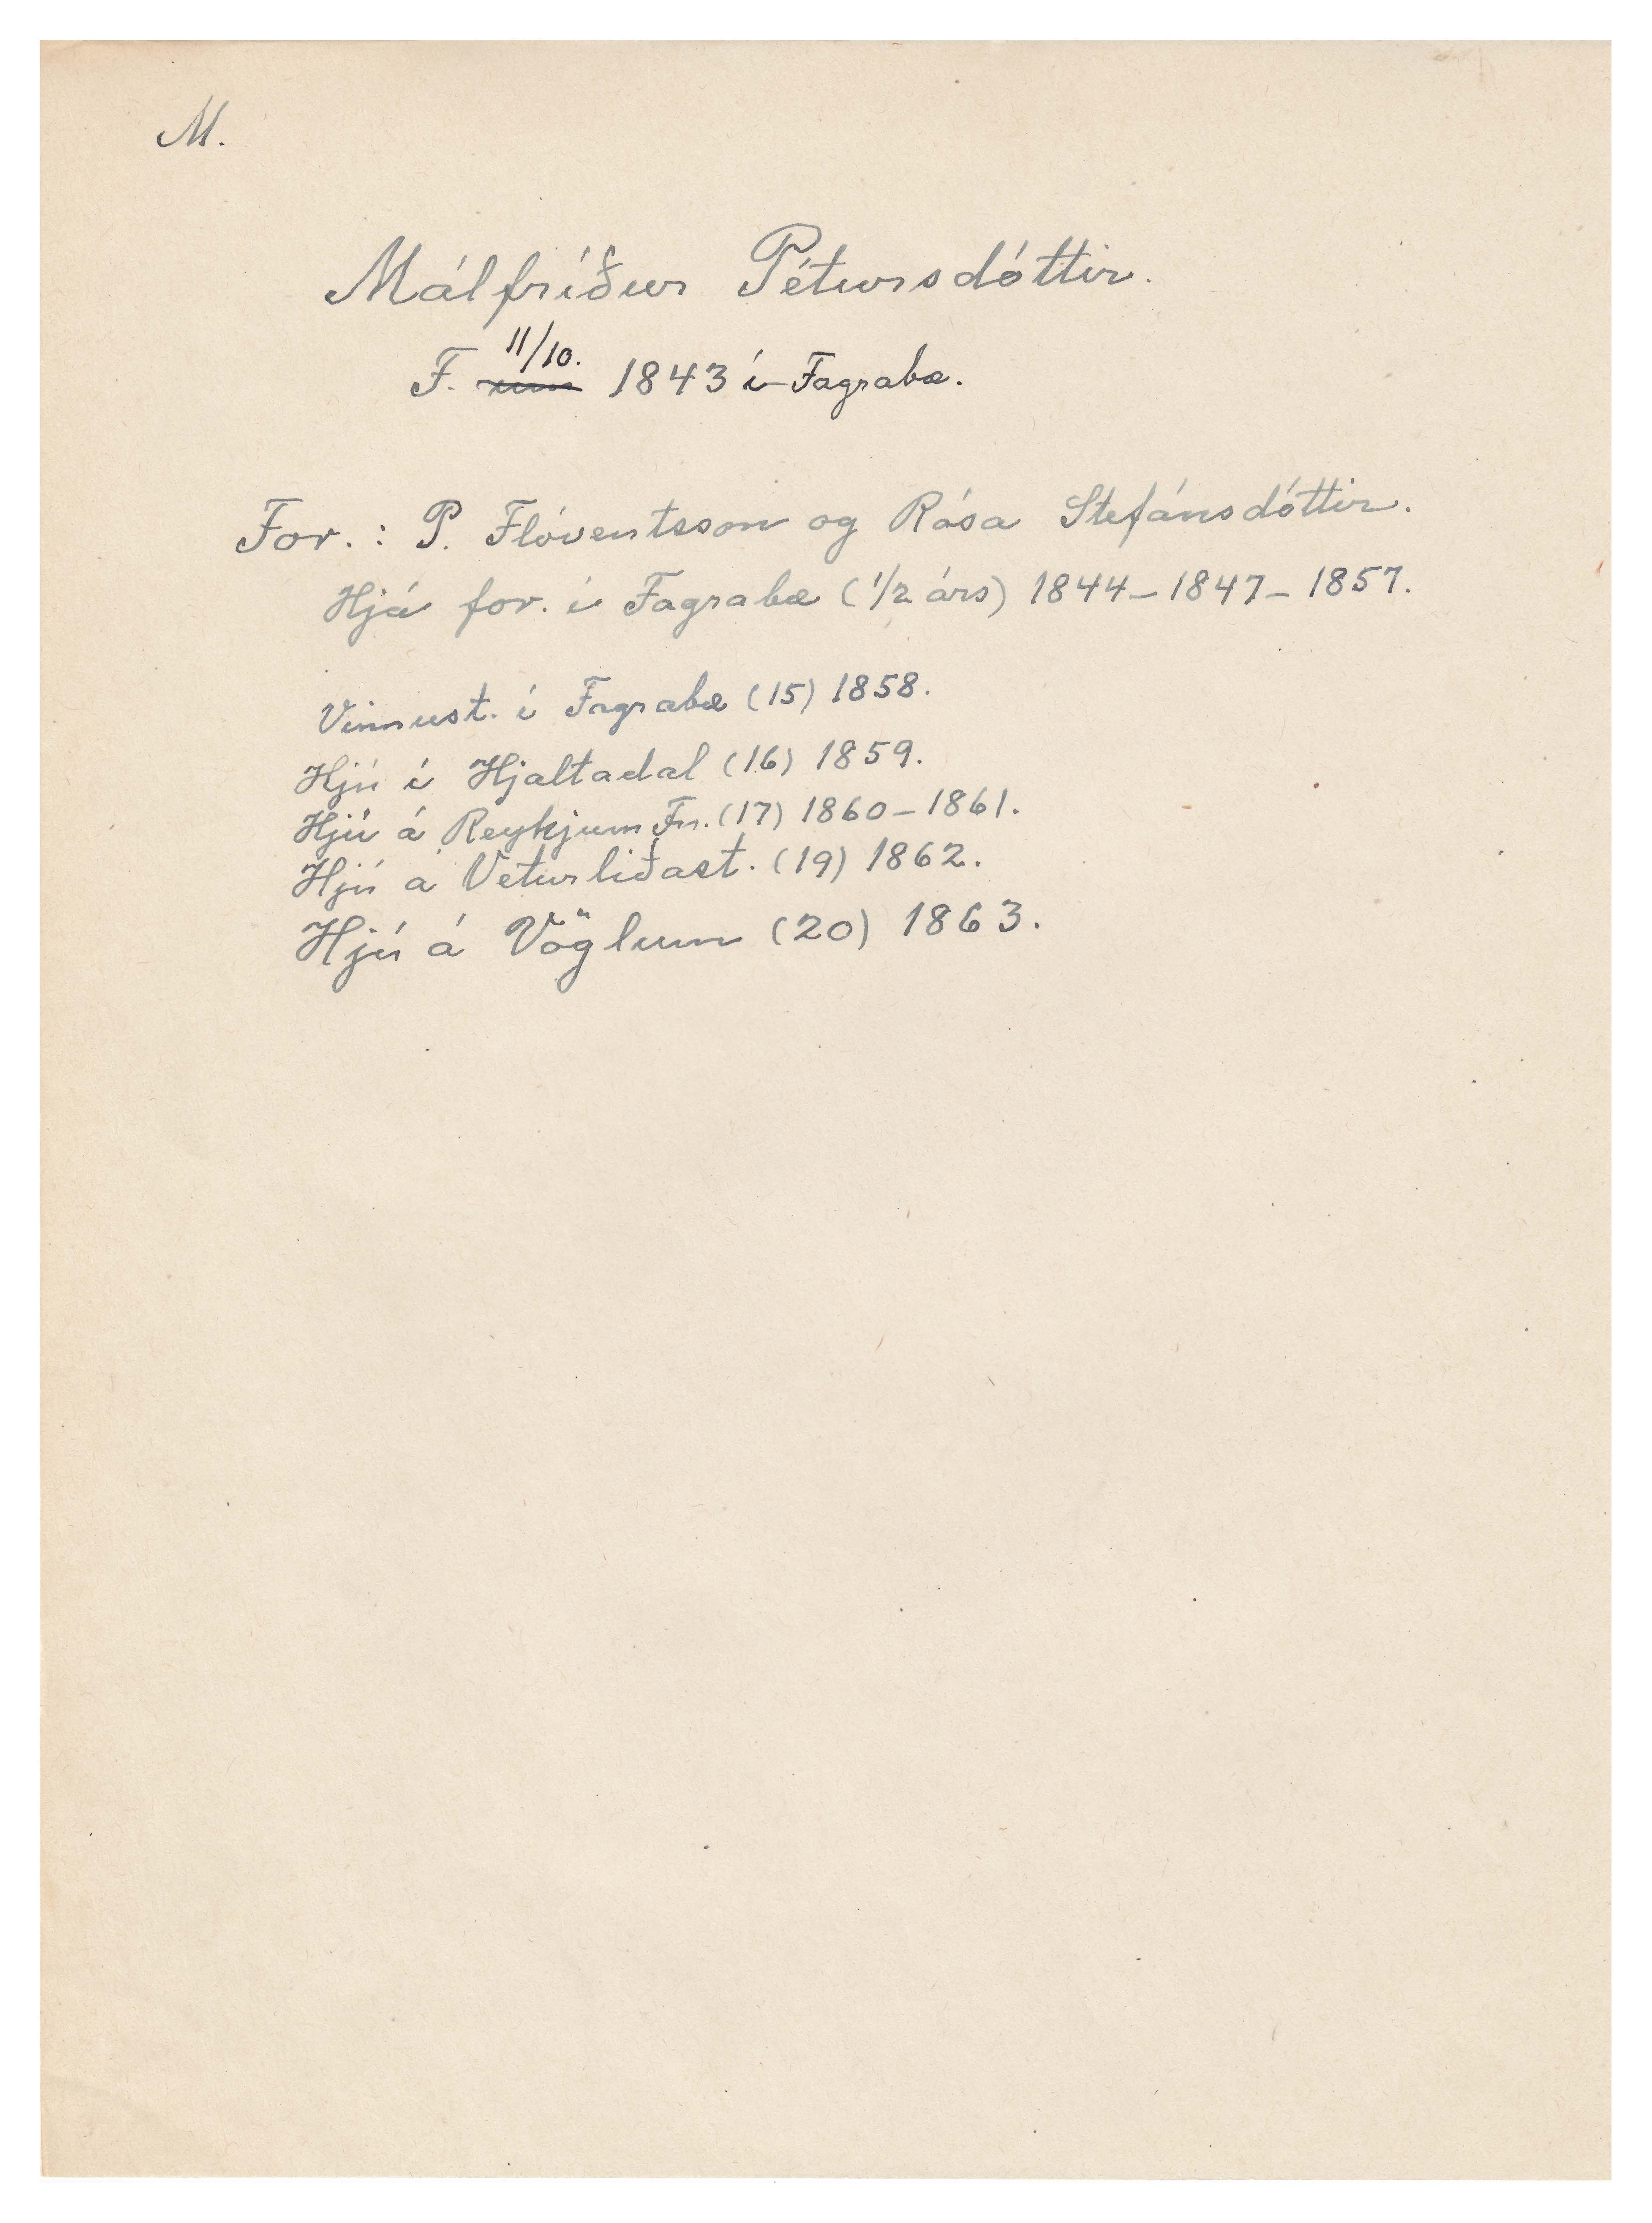 M.
Málfríður Pétursdóttir.
F. 11/10. 1843 í Fagrabæ.
For.: P. Flóventsson og Rósa Stefánsdóttir.
Hjá for. í Fagrabæ (1/2 árs) 1844-1847-1857.
Vinnust. í Fagrabæ (15) 1858.
Hjú í Hjaltadal (16) 1859.
Hjú á Reykjum Fn. (17) 1860-1861.
Hjú á Veturliðast. (19) 1862.
Hjú á Vöglum (20) 1863.